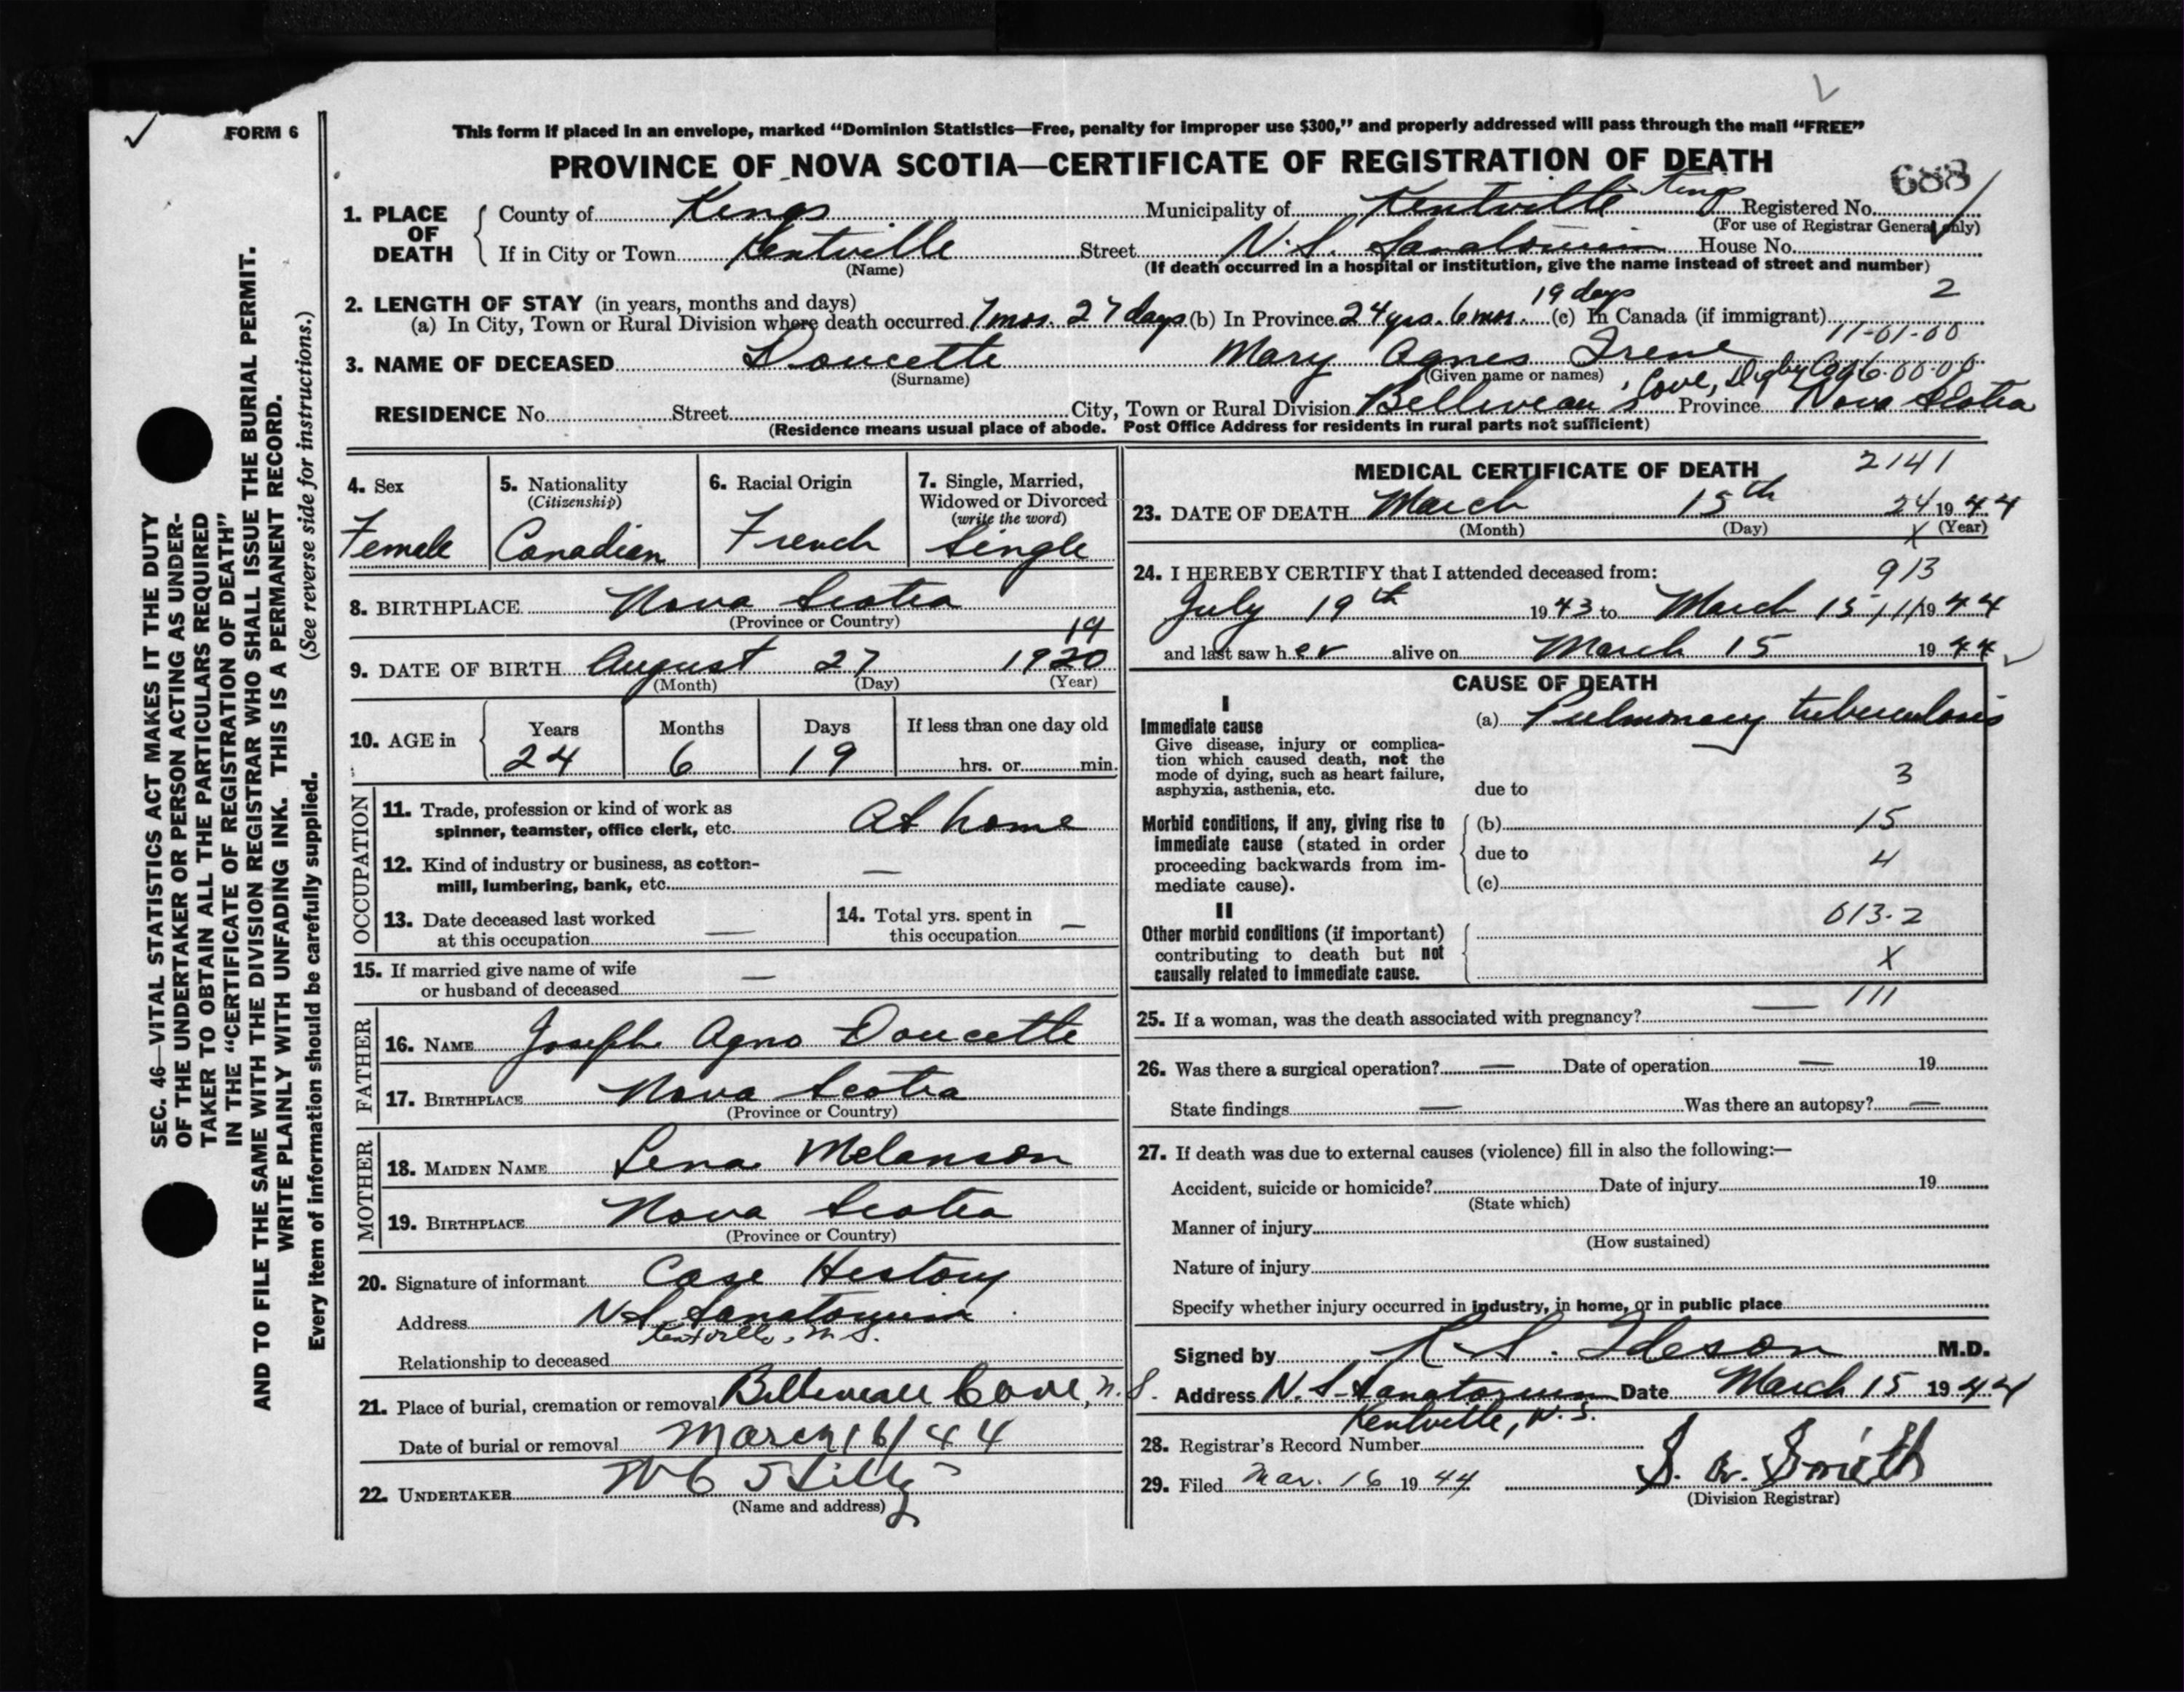 FORM 6
This form if placed in an envelope, marked “Dominion Statistics—Free, penalty for improper use $300,” and properly addressed will pass through the mail “FREE”
PROVINCE OF NOVA SCOTIA—CERTIFICATE OF REGISTRATION OF DEATH
688
1. PLACE OF DEATH
County of Kings Municipality of Kentville Kings Registered No.
(For use of Registrar General only)
If in City or Town Kentville Street N.S. Sanatorium House No.
(Name) (If death occurred in a hospital or institution, give the name instead of street and number)
2. LENGTH OF STAY (in years, months and days) 19 days 2
(a) In City, Town or Rural Division where death occurred 7 mos. 27 days (b) In Province 24 yrs. 6 mos. (c) In Canada (if immigrant)
11-01-00
3. NAME OF DECEASED Doucette Mary Agnes Irene
(Surname) (Given name or names)
RESIDENCE No. Street City, Town or Rural Division Belliveau's Cove, Digby Co Province Nova Scotia
(Residence means usual place of abode. Post Office Address for residents in rural parts not sufficient)
4. Sex Female
5. Nationality (Citizenship) Canadian
6. Racial Origin French
7. Single, Married, Widowed or Divorced (write the word) Single
8. BIRTHPLACE Nova Scotia
(Province or Country)
19
9. DATE OF BIRTH August 27 1920
(Month) (Day) (Year)
10. AGE in Years 24 Months 6 Days 19 If less than one day old hrs. or min.
OCCUPATION
11. Trade, profession or kind of work as spinner, teamster, office clerk, etc. At home
12. Kind of industry or business, as cotton-mill, lumbering, bank, etc. —
13. Date deceased last worked at this occupation —
14. Total yrs. spent in this occupation —
15. If married give name of wife or husband of deceased —
FATHER
16. NAME Joseph Agno Doucette
17. BIRTHPLACE Nova Scotia
(Province or Country)
MOTHER
18. MAIDEN NAME Lena Melanson
19. BIRTHPLACE Nova Scotia
(Province or Country)
20. Signature of informant Case History
Address N.S. Sanatorium
Kentville, N.S.
Relationship to deceased
21. Place of burial, cremation or removal Belliveau Cove, N.S.
Date of burial or removal March 16/44
22. UNDERTAKER
(Name and address)
MEDICAL CERTIFICATE OF DEATH 2141
23. DATE OF DEATH March 15th 24 1944
(Month) (Day) X (Year)
24. I HEREBY CERTIFY that I attended deceased from: 913
July 19th 1943 to March 15 1944
and last saw her alive on March 15 1944
CAUSE OF DEATH
I
Immediate cause (a) Pulmonary tuberculosis
Give disease, injury or complication which caused death, not the mode of dying, such as heart failure, asphyxia, asthenia, etc.
3
due to
Morbid conditions, if any, giving rise to immediate cause (stated in order proceeding backwards from immediate cause).
(b) 15
due to 4
(c)
II
013.2
Other morbid conditions (if important) contributing to death but not causally related to immediate cause.
X
111
25. If a woman, was the death associated with pregnancy? —
26. Was there a surgical operation? — Date of operation — 19
State findings — Was there an autopsy? —
27. If death was due to external causes (violence) fill in also the following:—
Accident, suicide or homicide? Date of injury 19
(State which)
Manner of injury
(How sustained)
Nature of injury
Specify whether injury occurred in industry, in home, or in public place
Signed by R. S. Ideson M.D.
Address N. S. Sanatorium Date March 15 1944
Kentville, N.S.
28. Registrar's Record Number
29. Filed Mar. 16 1944 Smith
(Division Registrar)
SEC. 46—VITAL STATISTICS ACT MAKES IT THE DUTY
OF THE UNDERTAKER OR PERSON ACTING AS UNDER-
TAKER TO OBTAIN ALL THE PARTICULARS REQUIRED
IN THE “CERTIFICATE OF REGISTRATION OF DEATH”
AND TO FILE THE SAME WITH THE DIVISION REGISTRAR WHO SHALL ISSUE THE BURIAL PERMIT.
WRITE PLAINLY WITH UNFADING INK. THIS IS A PERMANENT RECORD.
Every item of information should be carefully supplied. (See reverse side for instructions.)